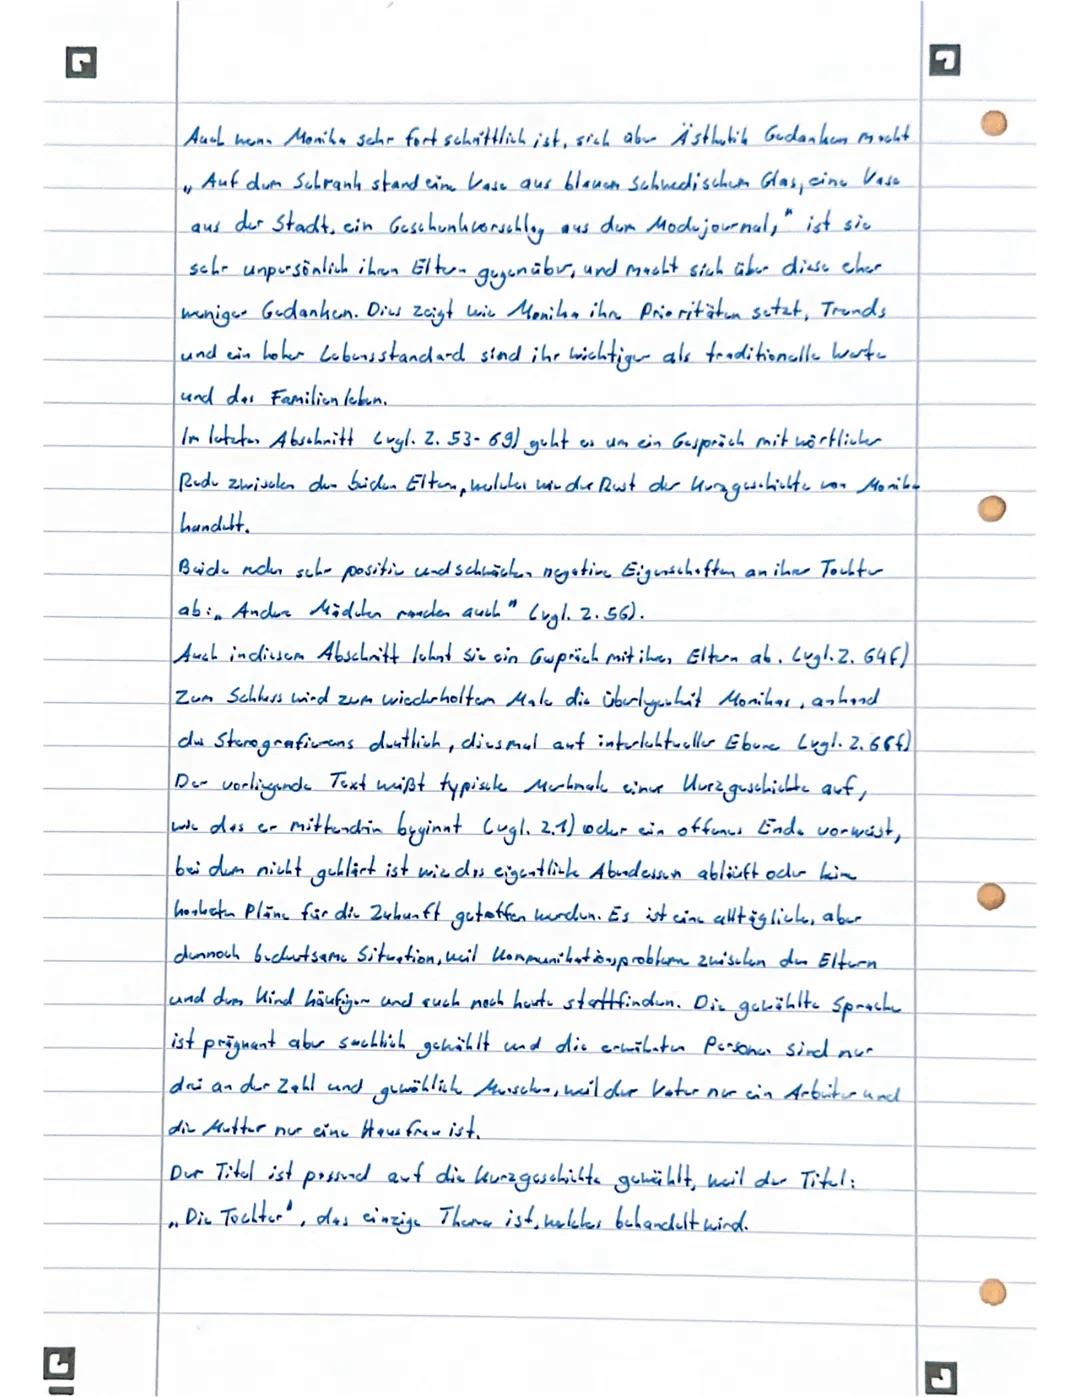 Auch wenn Monika sehr fortschrittlich ist, sich über Ästhetik Gedanken macht
„Auf dem Schrank stand eine Vase aus blauem schwedischem Glas, eine Vase
aus der Stadt, ein Geschenkvorschlag aus dem Modejournal," ist sie
sehr unpersönlich ihren Eltern gegenüber, und macht sich über diese eher
weniger Gedanken. Dies zeigt wie Monika ihre Prioritäten setzt, Trends
und ein hoher Lebensstandard sind ihr wichtiger als traditionelle Werte
und das Familienleben.
Im letzten Abschnitt (vgl. Z. 53-69) geht es um ein Gespräch mit wörtlicher
Rede zwischen den beiden Eltern, welches wie der Rest der Kurzgeschichte von Monika
handelt.
Beide reden sehr positiv und schwächen negative Eigenschaften an ihrer Tochter
ab: „Andere Mädchen rauchen auch" (vgl. Z. 56).
Auch in diesem Abschnitt lehnt sie ein Gespräch mit ihren Eltern ab. (vgl. Z. 64f)
Zum Schluss wird zum wiederholten Male die überlegenheit Monikas, anhand
des Stenografierens deutlich, diesmal auf intelektueller Ebene (vgl. Z. 66f)
Der vorliegende Text weißt typische Merkmale einer Kurzgeschichte auf,
wie das er mittendrin beginnt (vgl. Z. 1) oder ein offenes Ende vorweist,
bei dem nicht geklärt ist wie das eigentliche Abendessen abläuft oder keine
konkreten Pläne für die Zukunft getroffen werden. Es ist eine alltägliche, aber
dennoch bedeutsame Situation, weil Kommunikationsprobleme zwischen den Eltern
und dem Kind häufiger und auch noch heute stattfinden. Die gewählte Sprache
ist prägnant aber sachlich gewählt und die erwähnten Personen sind nur
drei an der Zahl und gewöhlich Menschen, weil der Vater nur ein Arbeiter und
die Mutter nur eine Hausfrau ist.
Der Titel ist passend auf die Kurzgeschichte gewählt, weil der Titel:
„Die Tochter", das einzige Thema ist, welches behandelt wird.